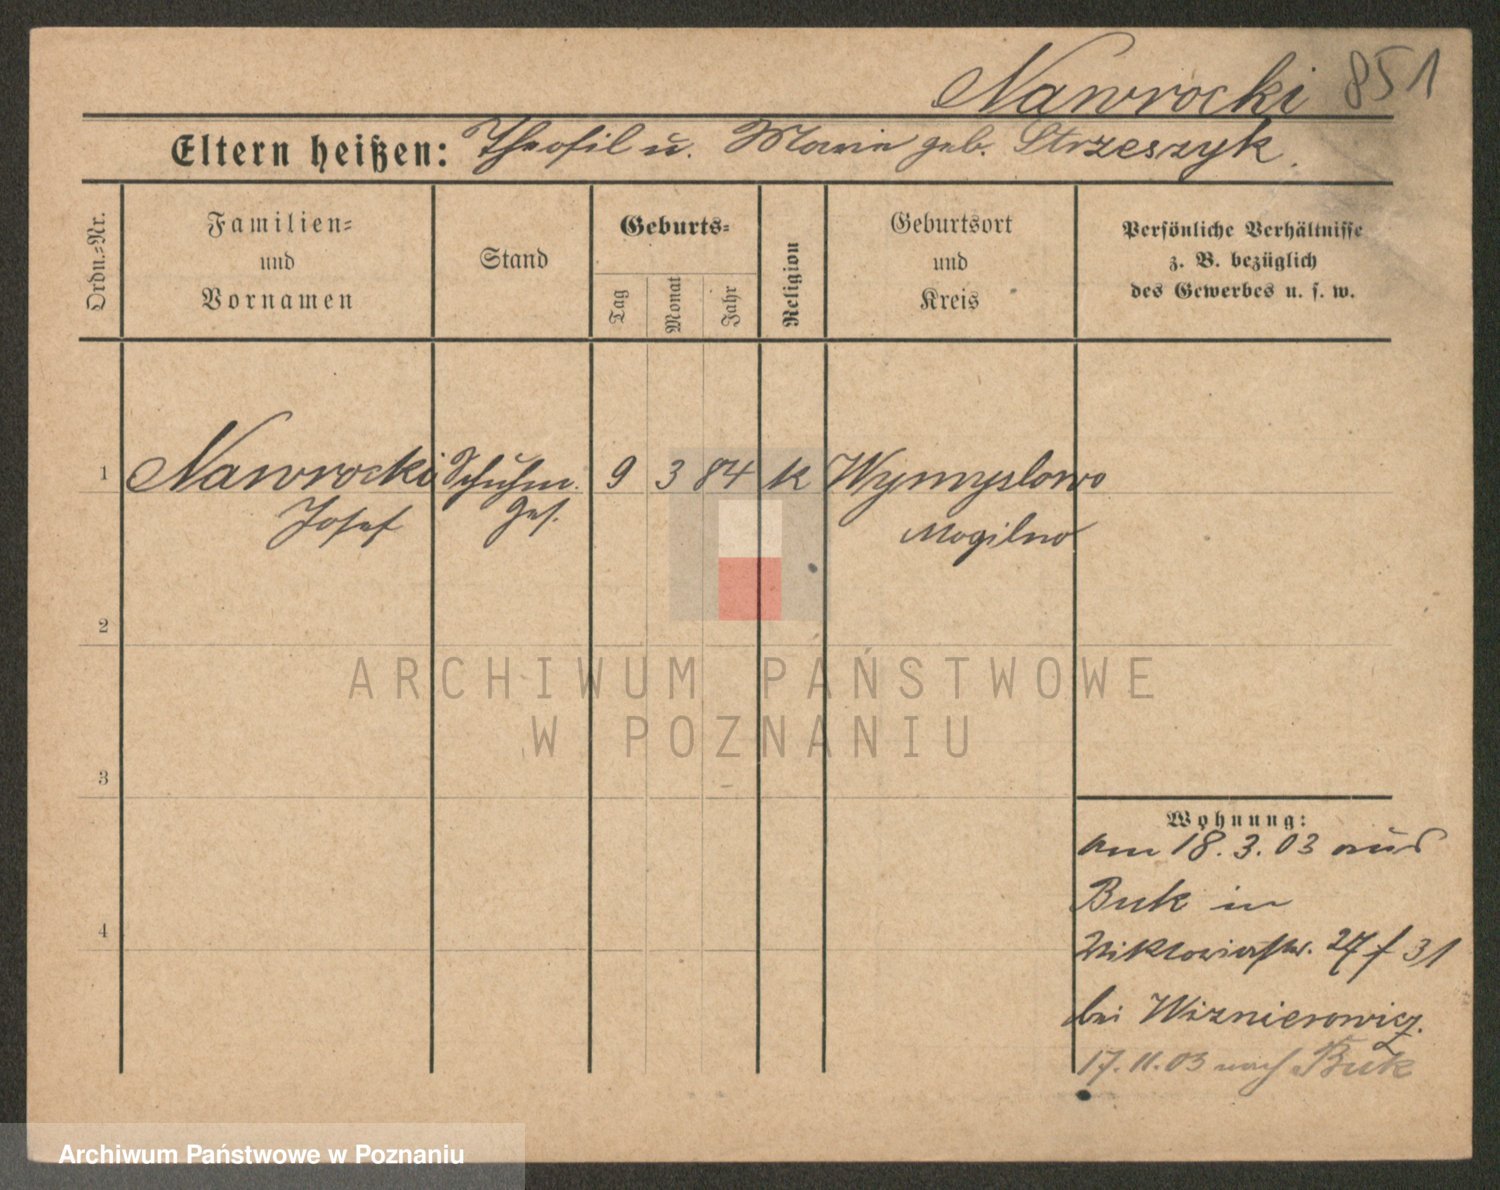 Nawrocki 851
Eltern heißen: Theofil u. Marie geb. Strzeszyk.
Ordn.-Nr.
Familien-
und
Vornamen
Stand
Geburts-
Tag
Monat
Jahr
Religion
Geburtsort
und
Kreis
Persönliche Verhältnisse
z. B. bezüglich
des Gewerbes u. s. w.
1 Nawrocki Schuhm. 9 3 84 k Wymyslowo
Josef Ges. Mogilno
2
ARCHIWUM PAŃSTWOWE
W POZNANIU
3
Wohnung:
am 18.3.03 aus
4
Buk in
Viktoriastr. 27 f 31
bei Wiznierowicz.
17.11.03 nach Buk
Archiwum Państwowe w Poznaniu